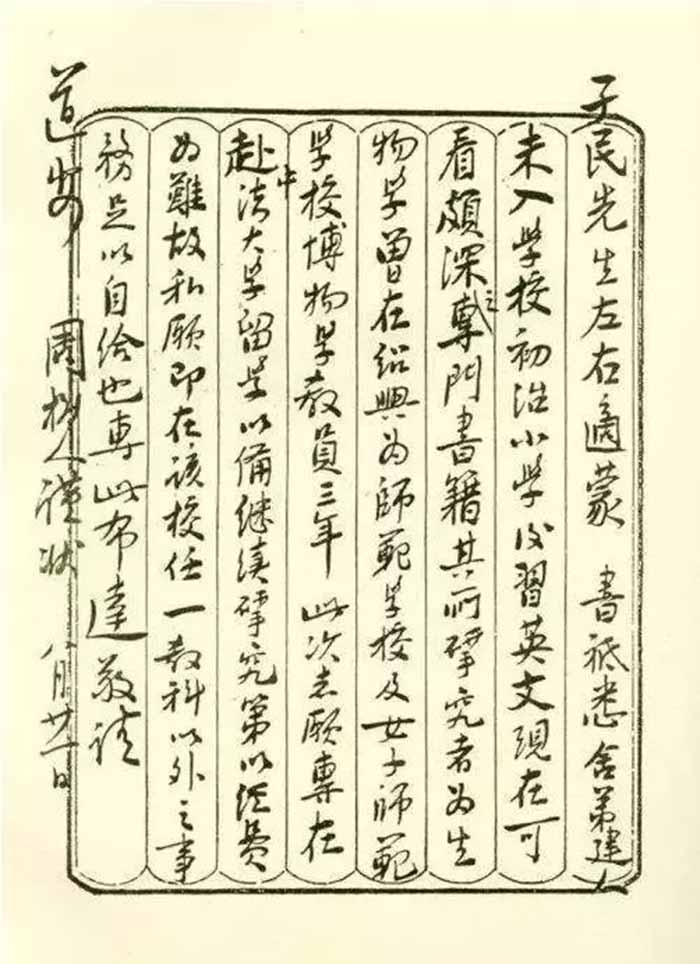 孑民先生左右適蒙 書祗悉舍弟建人
未入學校初治小學後習英文現在可
看頗深之專門書籍其所揅究者為生
物學曾在紹興為師範學校及女子師範
學校博物學教員三年此次志願專在
赴中法大學留學以備繼續揅究第以經費
為難故私願即在該校任一教科以外之事
務足以自給也專此布達敬請
道安 周樹人謹狀 八月廿一日